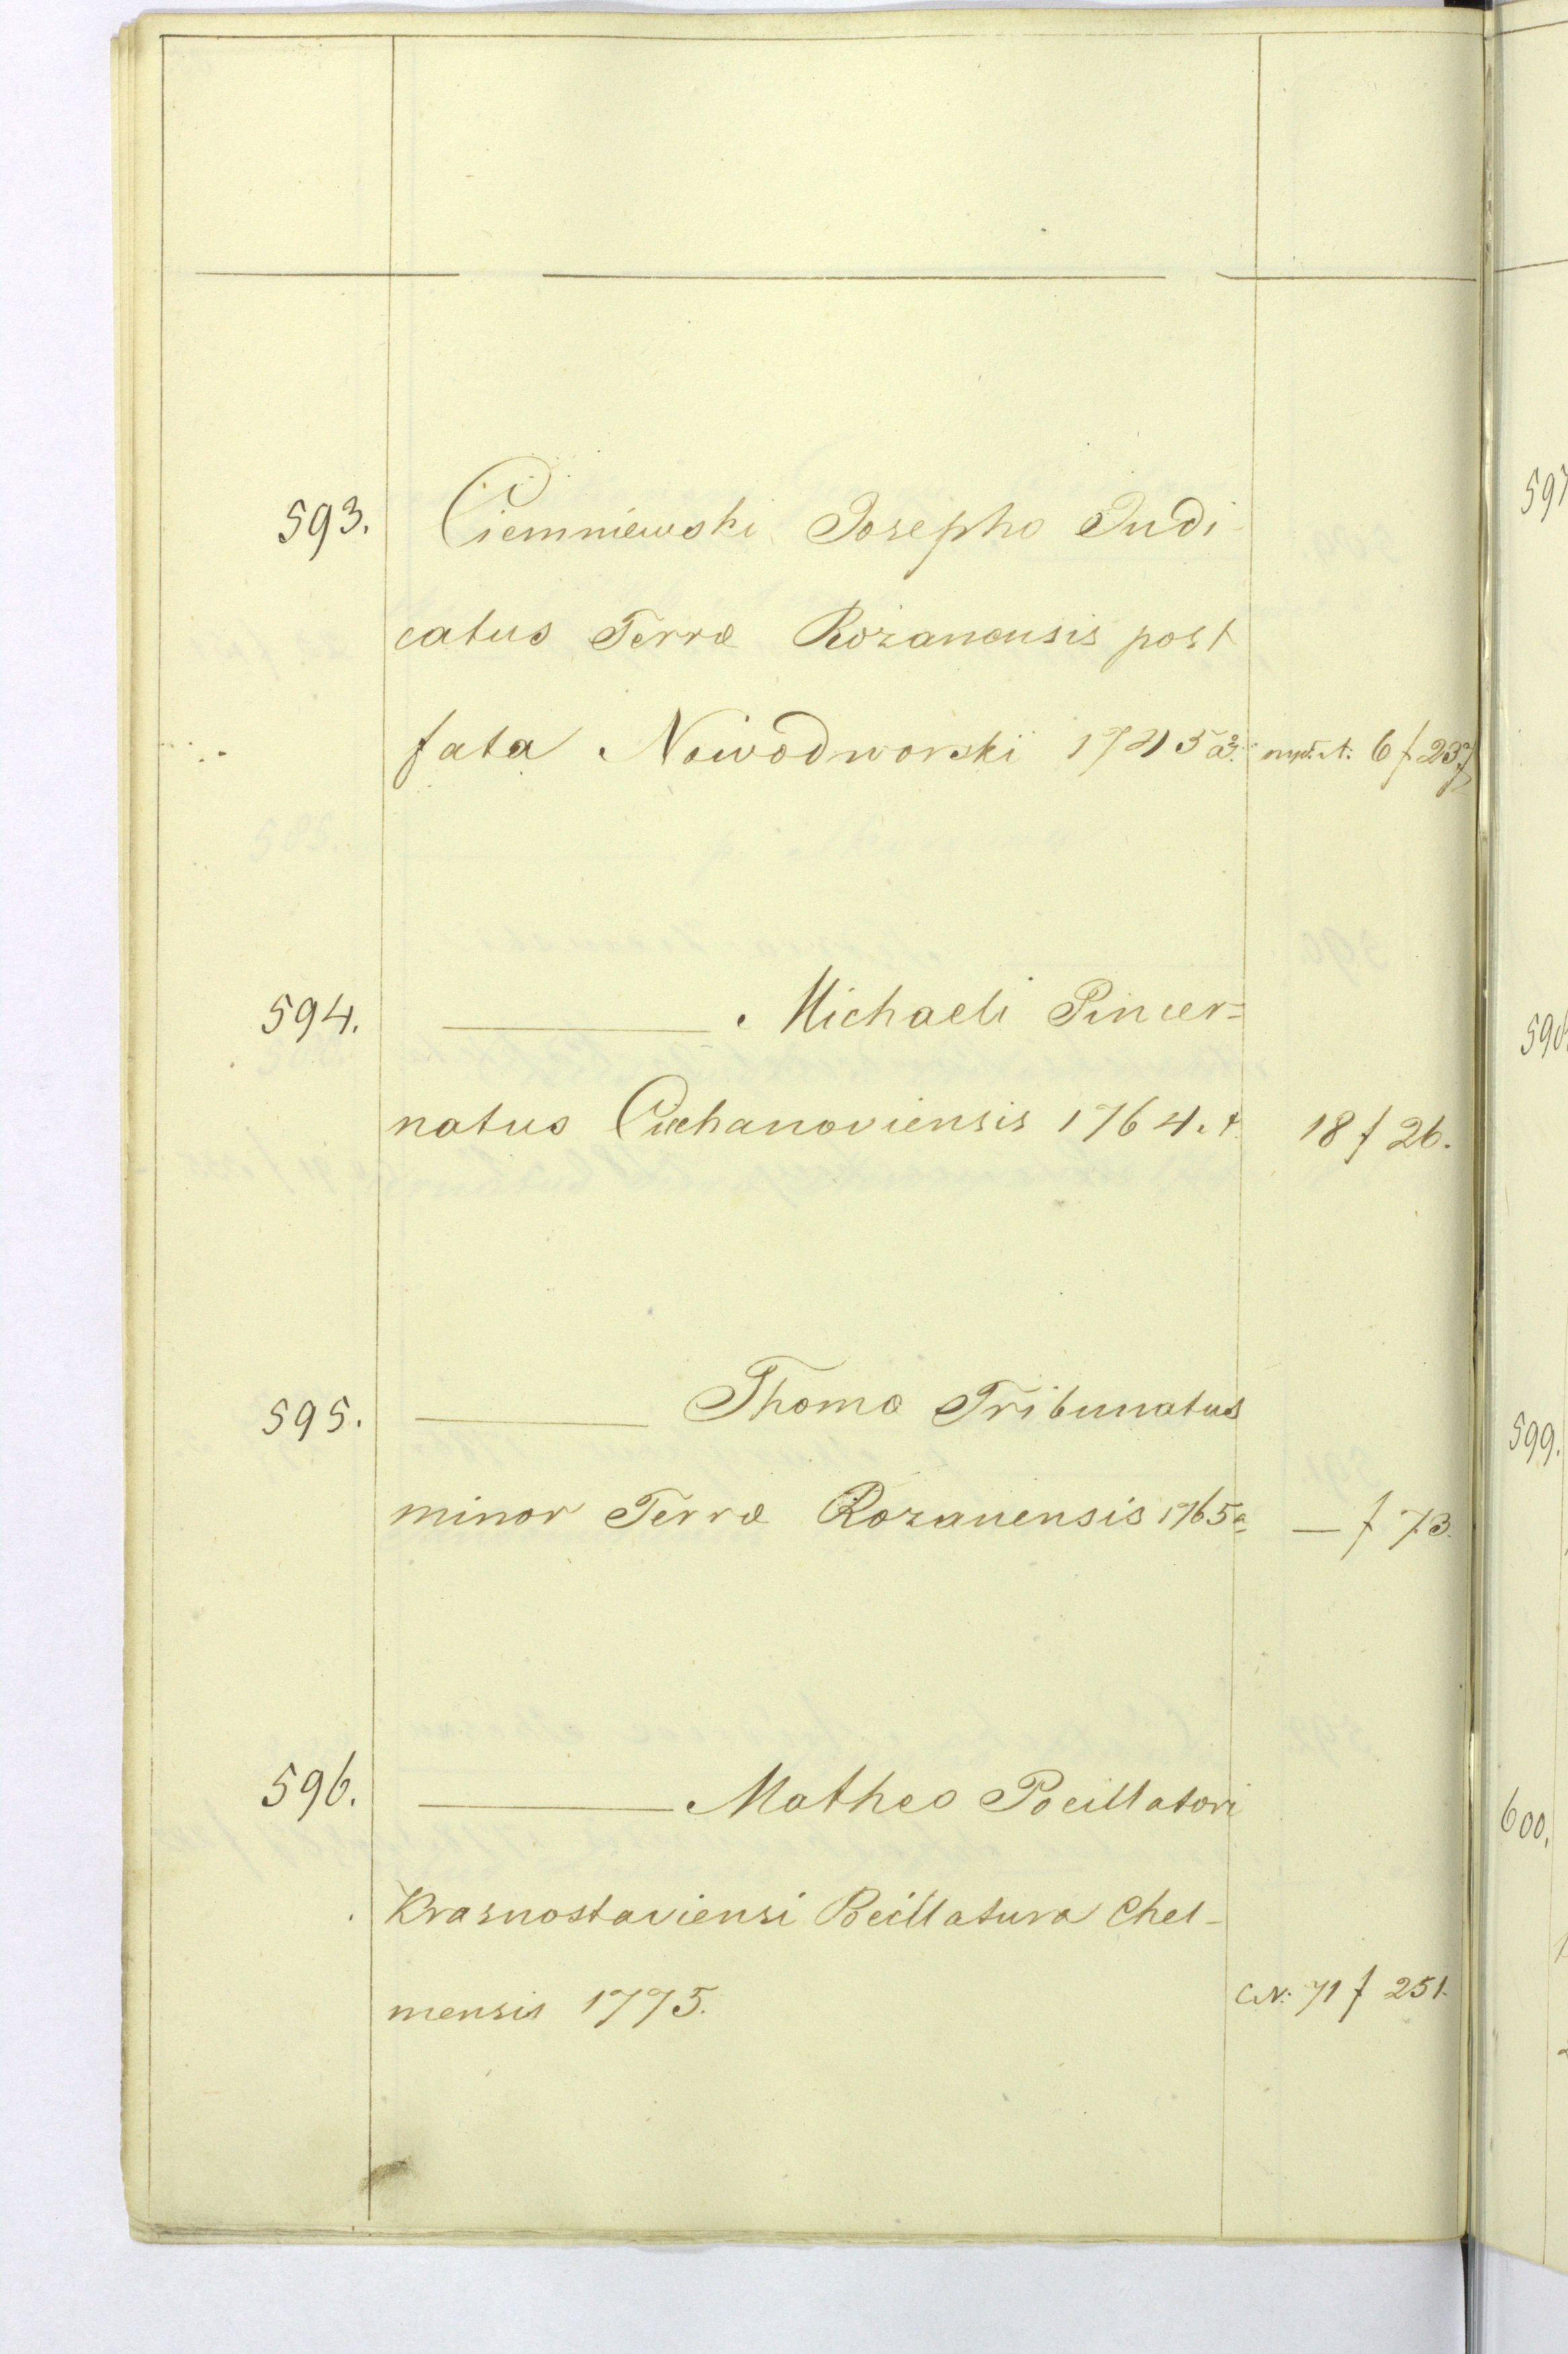 593. Ciemniewski Josepho Judi-
catus Terræ Rozanensis post
fata Nowodworski 1745 6 f 23
594. ——— Michaeli Pincer=
natus Ciechanoviensis 1764. 18 f 26.
595. ——— Thomæ Tribunatus
minor Terræ Rozanensis 1765 — f 73.
596. ——— Matheo Pocillatori
Krasnostaviensi Pocillatura Chel-
mensis 1775. CN: 71 f 251.
597
598
599.
600.